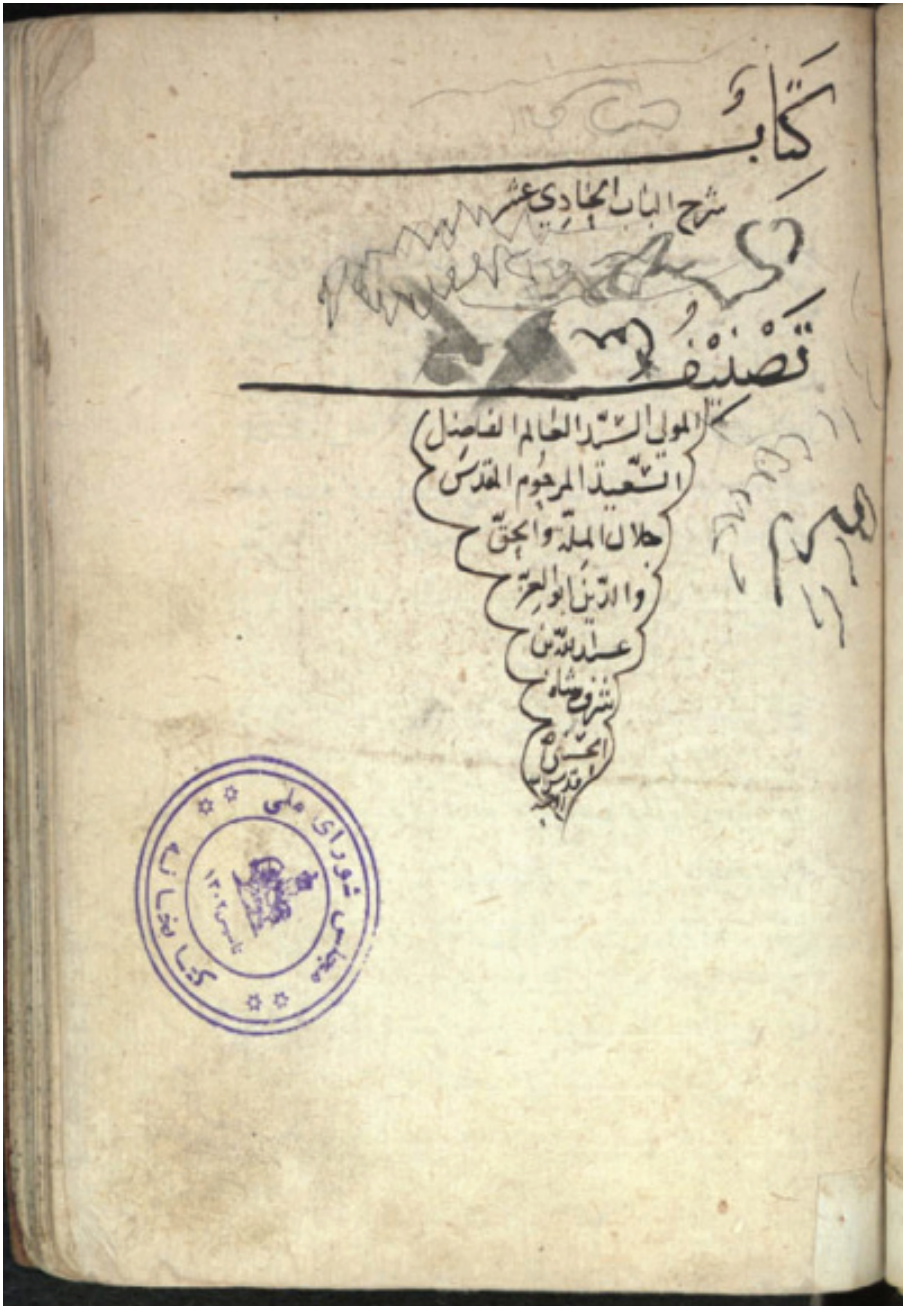 كِتَابُ
شرح الباب الحَادِي عشر
تَصْنِيْفُ
المولى السيّد العالم الفاضل
السّعيد المرحوم المقدّس
جلال الملّة والحقّ
والدّين ابو العزّ
عبد الله بن
شرفشاه
الحسيني
كتابخانه مجلس شورای ملی
تأسیس ۱۳۰۲